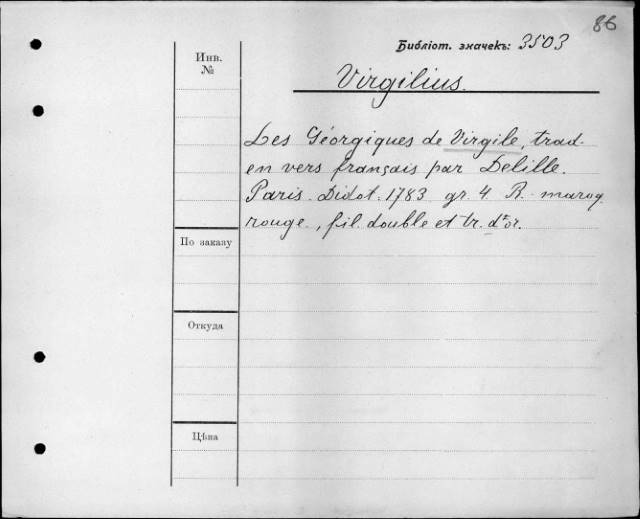 86
Библіот. значекъ: 3503
Инв.
№
Virgilius.
Les Géorgiques de Virgile, trad.
en vers français par Delille.
Paris. Didot. 1783 gr. 4. R. maroq.
rouge., fil. double et tr. d'or.
По заказу
Откуда
Цѣна